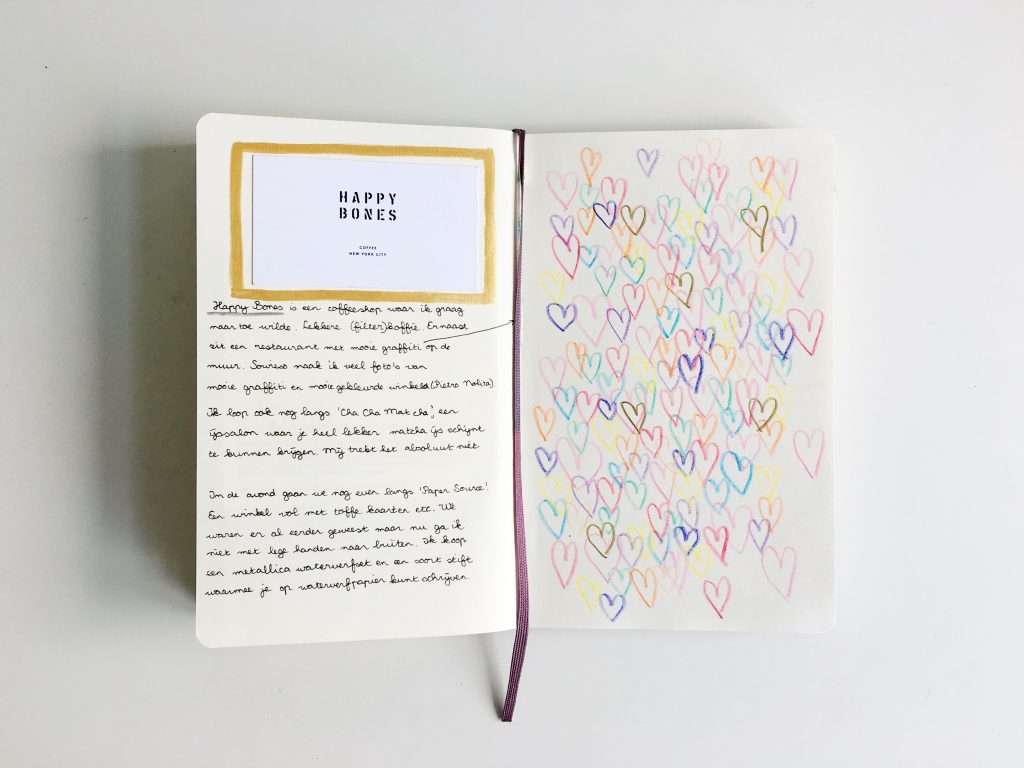 HAPPY
BONES
COFFEE
NEW YORK CITY
Happy Bones is een coffeeshop waar ik graag
naar toe wilde. Lekkere (filter)koffie. Ernaast
zit een restaurant met mooie graffiti op de
muur. Sowieso maak ik veel foto's van
mooie graffiti en mooie gekleurde winkels (Pietro Nolita)
Ik loop ook nog langs 'Cha Cha Matcha', een
ijssalon waar je heel lekker matcha ijs schijnt
te kunnen krijgen. Mij trekt het absoluut niét
In de avond gaan we nog even langs 'Paper Source'.
Een winkel vol met toffe kaarten etc. We
waren er al eerder geweest maar nu ga ik
niet met lege handen naar buiten. Ik koop
een metallica waterverfset en een soort stift
waarmee je op waterverfpapier kunt schrijven.